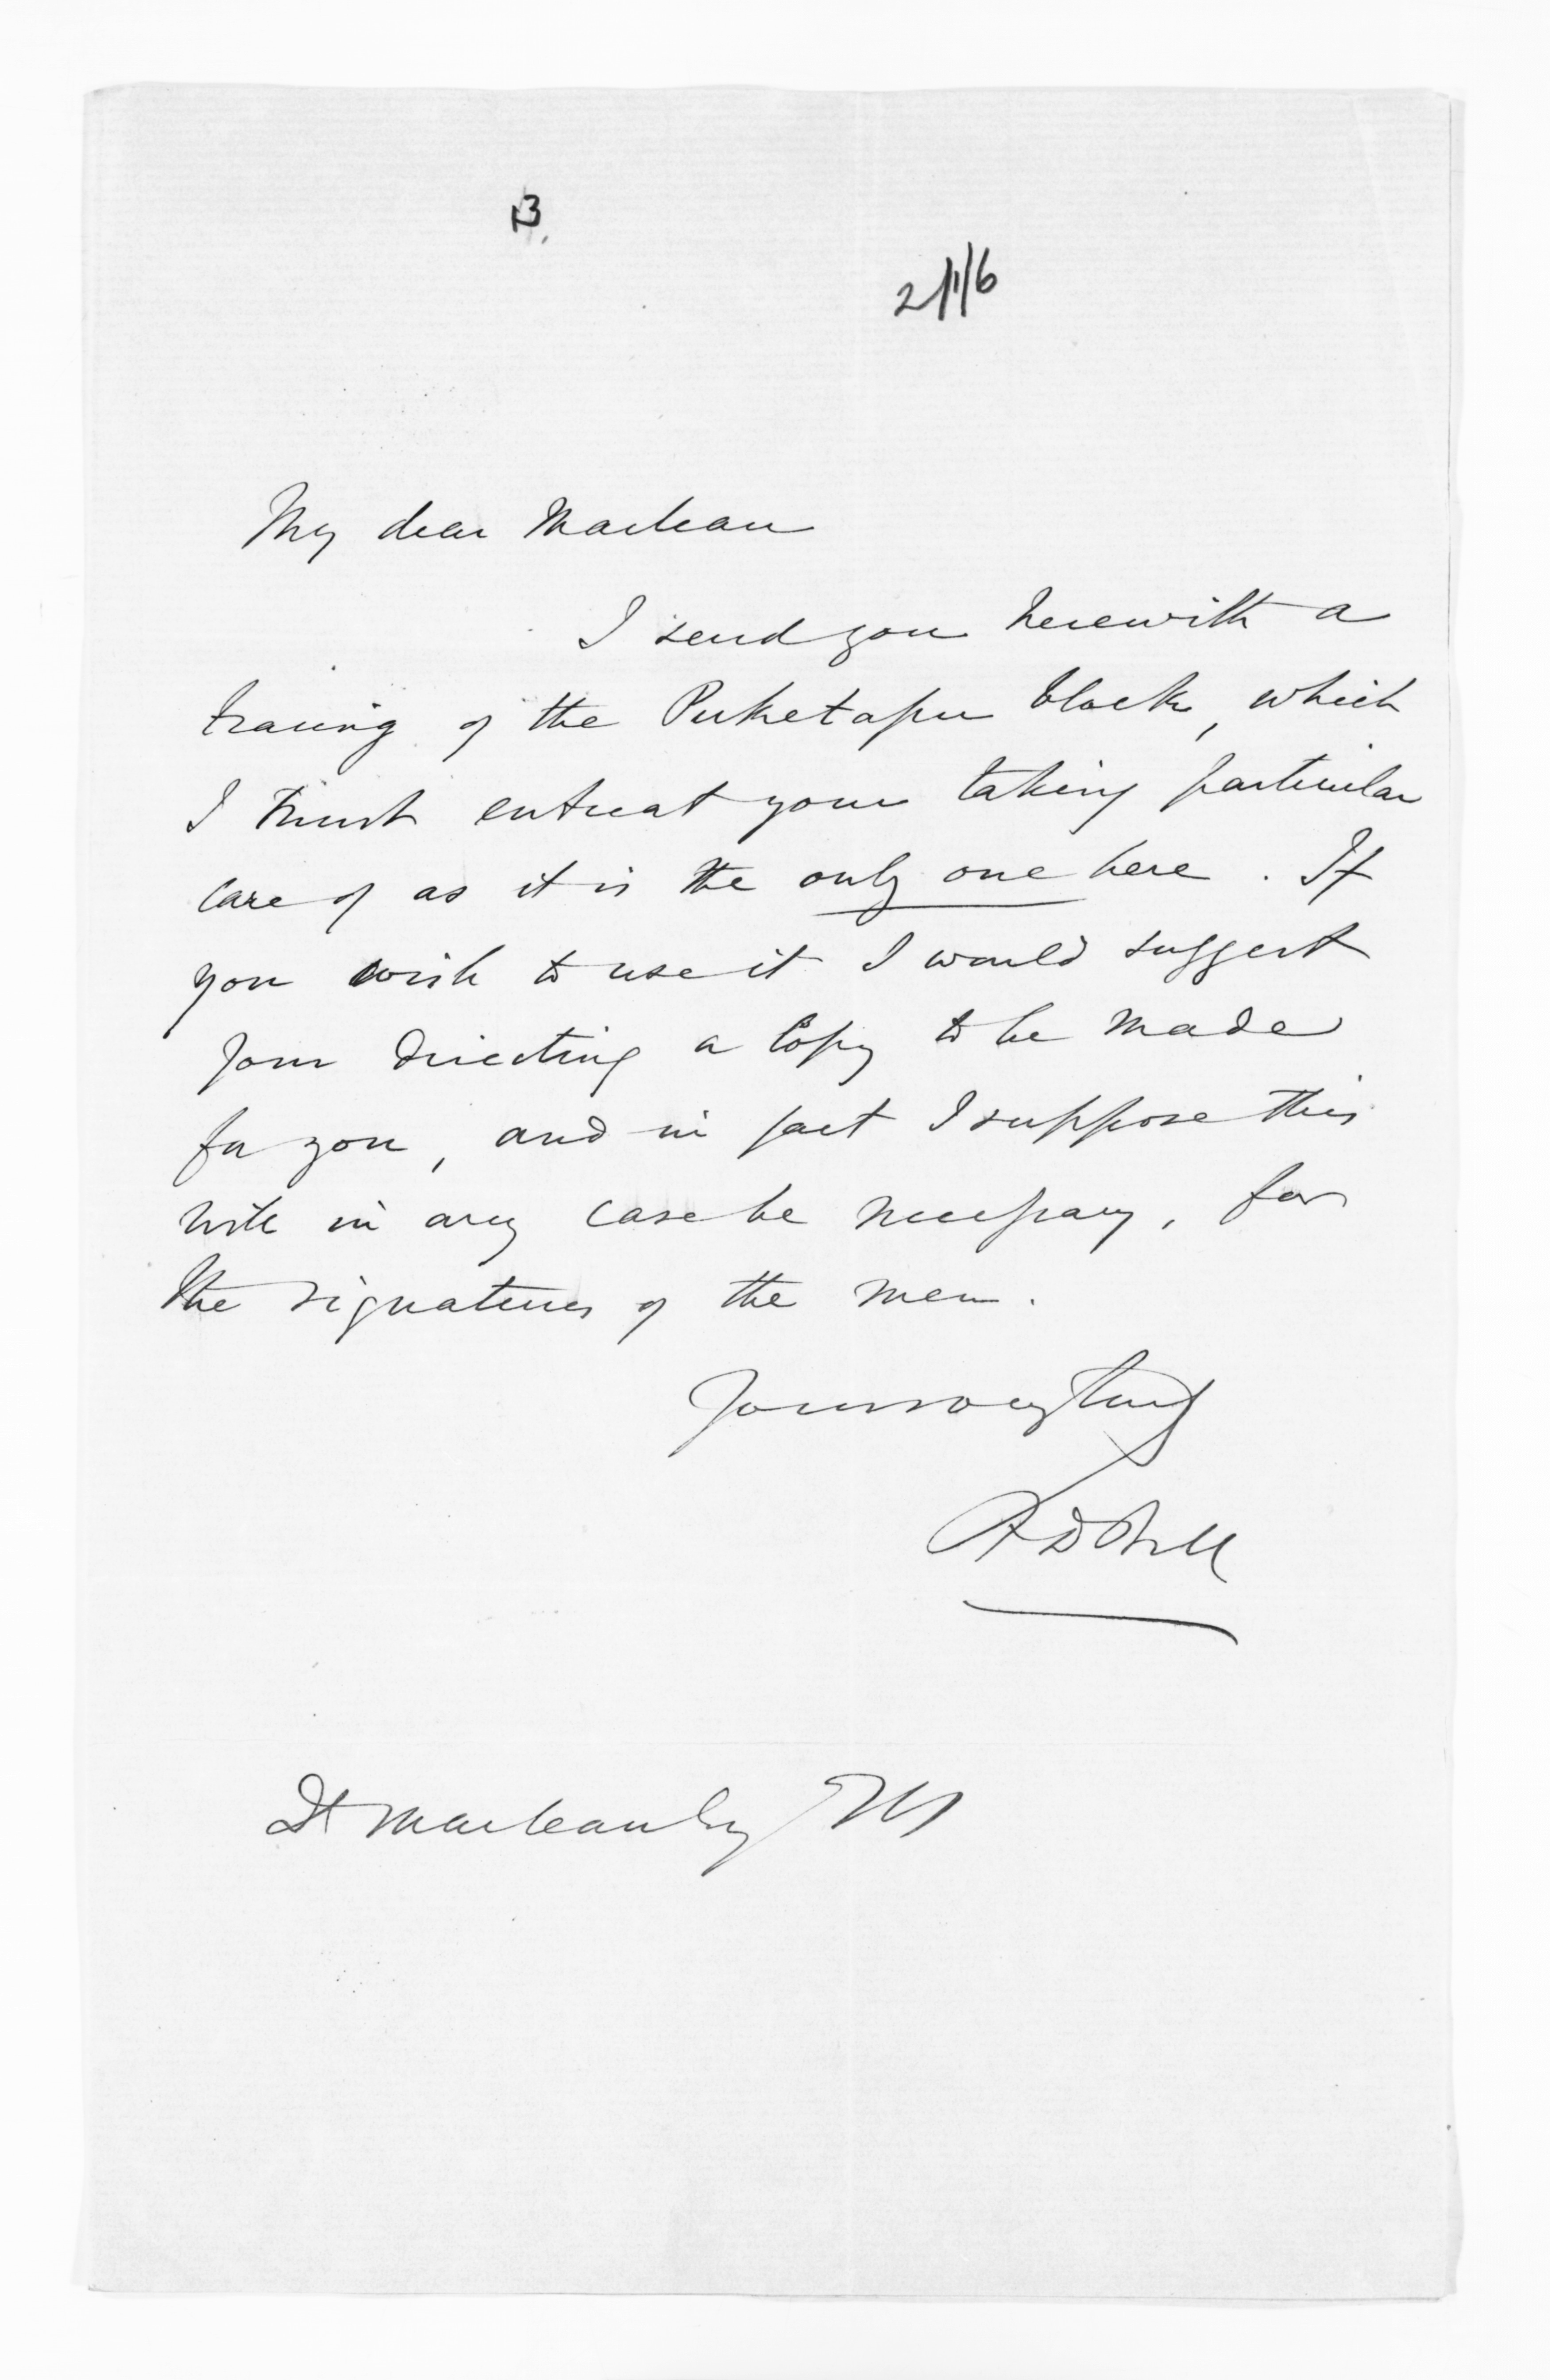 13.
2/1/6
My dear Maclean
I send you herewith a
tracing of the Puketapu block, which
I must entreat your taking particular
care of as it is the only one here. If
you wish to use it I would suggest
your directing a Copy to be made
for you, and in fact I suppose this
will in any case be necessary, for
the signatures of the men.
Yours very truly
F D Bell
Dd Maclean Esq